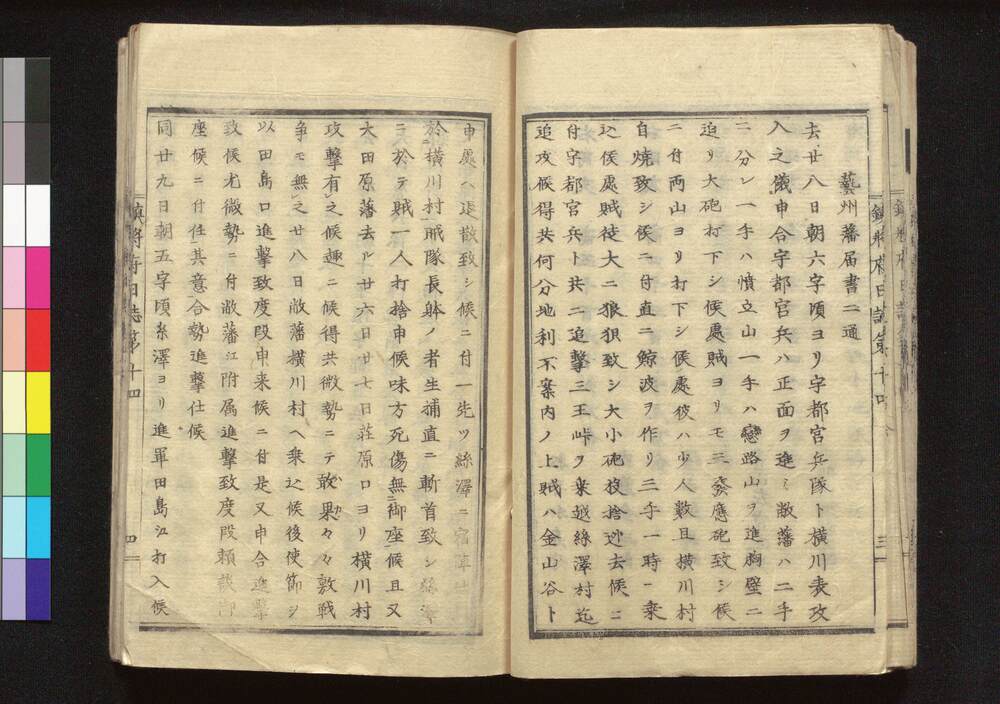 藝州藩届書二通
去廿八日朝六字頃ヨリ宇都宮兵隊ト横川表攻
入之儀申合宇都宮兵ハ正面ヲ進ミ敝藩ハ二手
ニ分レ一手ハ憤立山一手ハ戀路山ヲ進胸壁ニ
迫リ大砲打下シ候處賊ヨリモ三發應砲致シ候
ニ付両山ヨリ打下シ候處彼ハ少人數且横川村
自燒致シ候ニ付直ニ鯨波ヲ作リ三手一時ニ乗
込候處賊徒大ニ狼狽致シ大小砲投捨迯去候ニ
付宇都宮兵ト共ニ追撃三王峠ヲ乗越絲澤村迄
追攻候得共何分地利不案内ノ上賊ハ金山谷ト
申處ハ退散致シ候ニ付一先ツ絲澤ニ宿陣
於横川村賊隊長躰ノ者生捕直ニ斬首致シ絲澤
ニ於テ賊一人打捨申候味方死傷無御座候且又
大田原藩去ル廿六日廿七日荘原口ヨリ横川村
攻撃有之候趣ニ候得共微勢ニテ敢果々々敷戦
争モ無之廿八日敝藩横川村ヘ乗込候後使節ヲ
以田島口進撃致度段申来候ニ付是又申合進撃
致候尤微勢ニ付敝藩江附属進撃致度段頼談御
座候ニ付任其意合勢進撃仕候
同廿九日朝五字頃糸澤ヨリ進軍田島江打入候
鎮将府日誌第十四
三
鎮将府日誌第十四
四